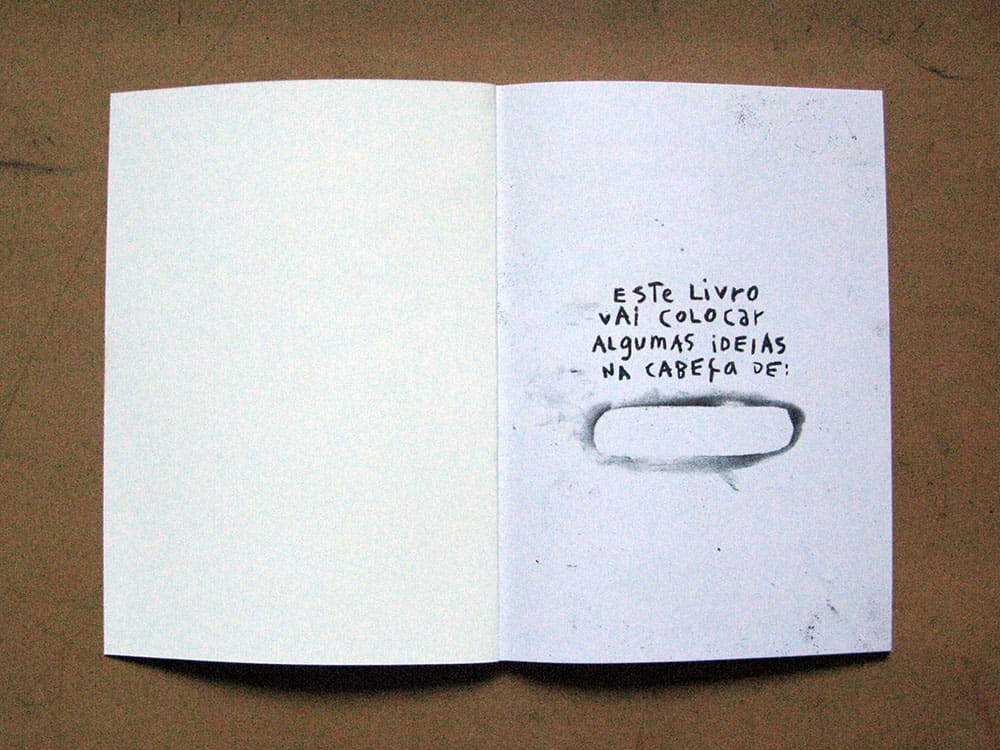 ESTE LIVRO
VAI COLOCAR
ALGUMAS IDEIAS
NA CABEÇA DE: